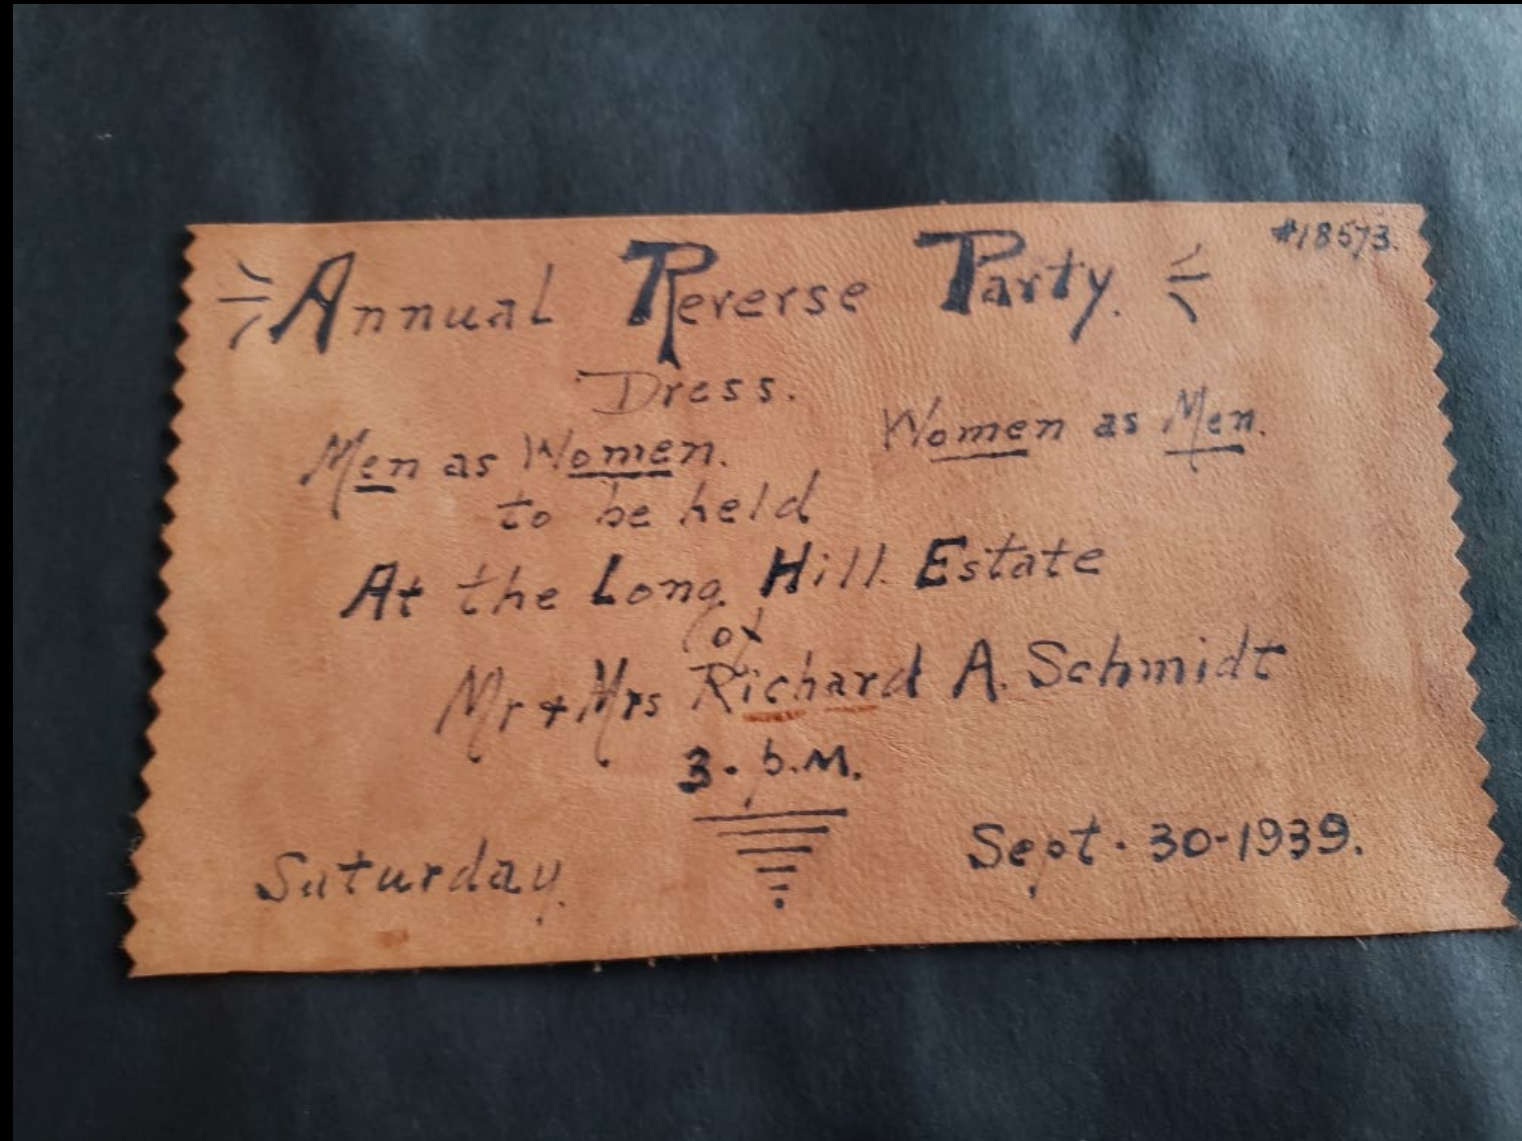 #18573.
Annual Reverse Party.
Dress.
Men as Women. Women as Men.
to be held
At the Long Hill Estate
of
Mr + Mrs Richard A. Schmidt
3. p.M.
Saturday. Sept. 30-1939.